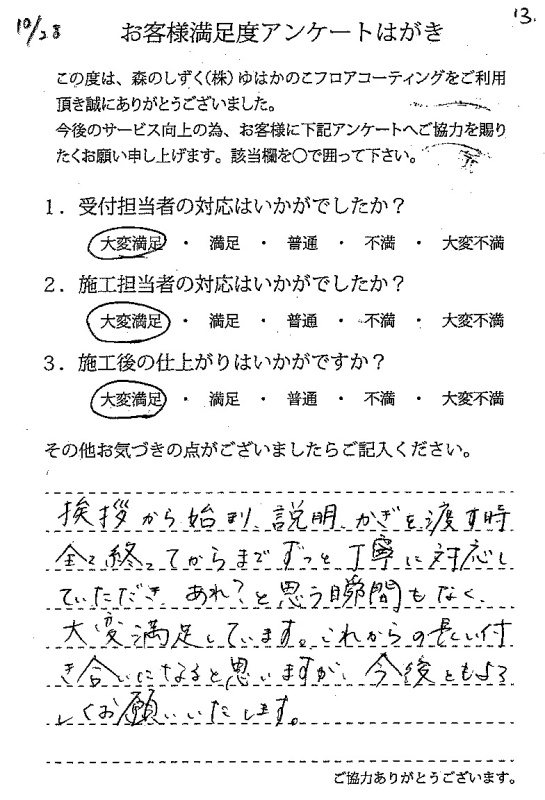 10/28
13.
お客様満足度アンケートはがき
この度は、森のしずく(株)ゆはかのこフロアコーティングをご利用
頂き誠にありがとうございました。
今後のサービス向上の為、お客様に下記アンケートへご協力を賜り
たくお願い申し上げます。該当欄を○で囲って下さい。
1．受付担当者の対応はいかがでしたか？
大変満足 ・ 満足 ・ 普通 ・ 不満 ・ 大変不満
2．施工担当者の対応はいかがでしたか？
大変満足 ・ 満足 ・ 普通 ・ 不満 ・ 大変不満
3．施工後の仕上がりはいかがですか？
大変満足 ・ 満足 ・ 普通 ・ 不満 ・ 大変不満
その他お気づきの点がございましたらご記入ください。
挨拶から始まり、説明、かぎを渡す時
全て終ってからまでずっと丁寧に対応し
ていただき、あれ？と思う瞬間もなく、
大変満足しています。これからの長い付
き合いになると思いますが、今後ともよろ
しくお願いいたします。
ご協力ありがとうございます。